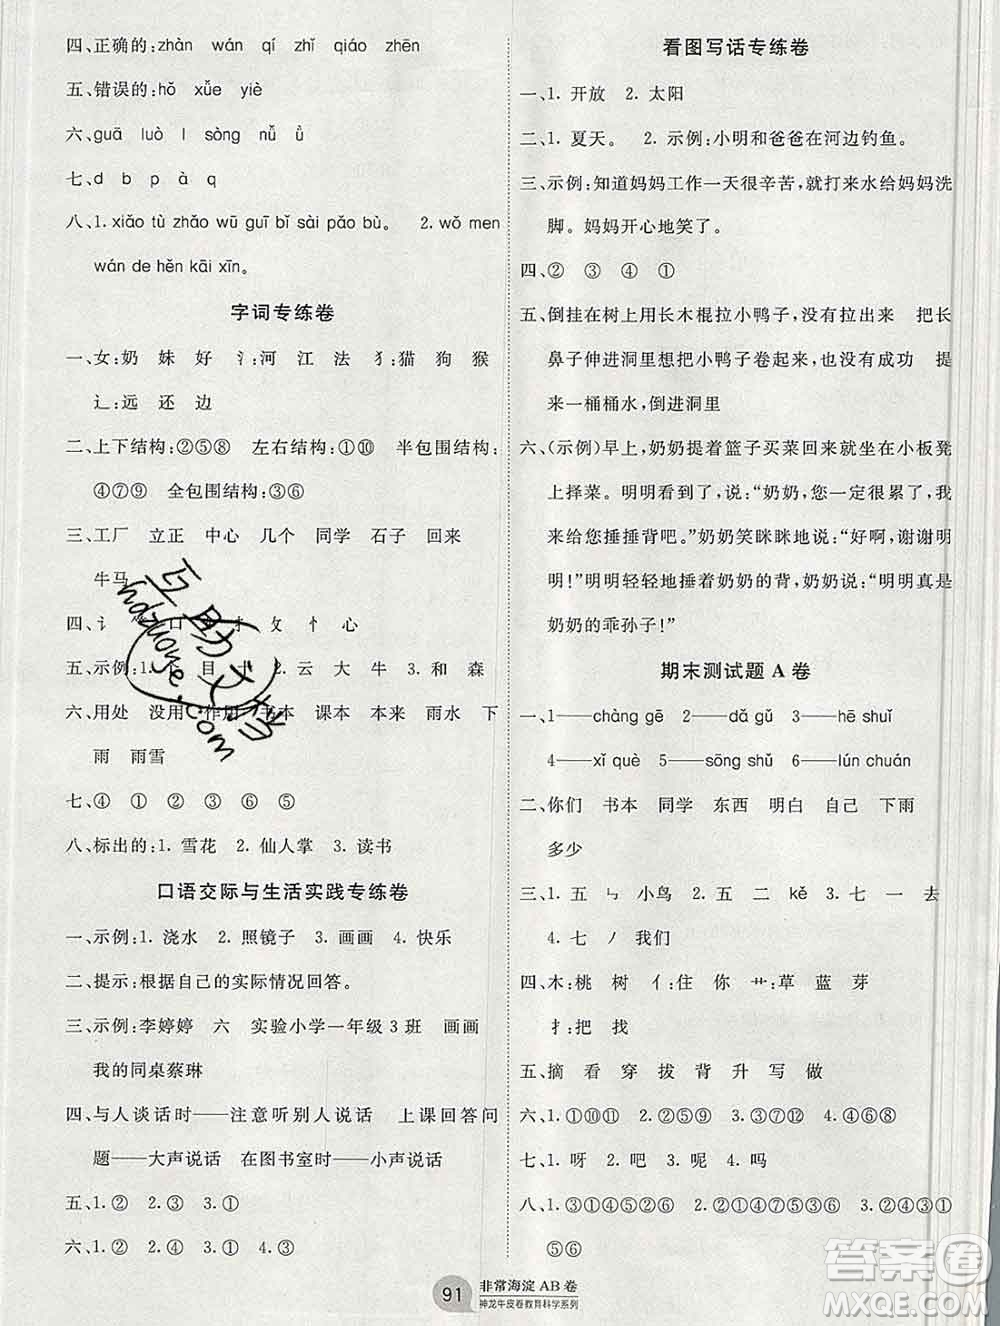 四、正确的:zhàn wán qí zhǐ qiáo zhēn
五、错误的:hǒ xǚe yiè
六、guā luò l sòng nǚ ǜ
七、d b p à q
八、1. xiǎo tù zhǎo wū guī bǐ sài pǎo bù。 2. wǒ men
wán de hěn kāi xīn。
字词专练卷
一、女:奶 妹 好 氵:河 江 法 犭:猫 狗 猴
辶:远 还 边
二、上下结构:②⑤⑧ 左右结构:①⑩ 半包围结构:
④⑦⑨ 全包围结构:③⑥
三、工厂 立正 中心 几个 同学 石子 回来
牛马
四、讠 口 扌 攵 忄 心
五、示例:1. 下 目 2. 云 大 牛 3. 和 森
六、用处 没用 作用 书本 课本 本来 雨水 下
雨 雨雪
七、④ ① ② ③ ⑥ ⑤
八、标出的:1. 雪花 2. 仙人掌 3. 读书
口语交际与生活实践专练卷
一、示例:1. 浇水 2. 照镜子 3. 画画 4. 快乐
二、提示:根据自己的实际情况回答。
三、示例:李婷婷 六 实验小学一年级3班 画画
我的同桌蔡琳
四、与人谈话时——注意听别人说话 上课回答问
题——大声说话 在图书室时——小声说话
五、1. ② 2. ③ 3. ①
六、1. ② 2. ② 3. ① 4. ③
看图写话专练卷
一、1. 开放 2. 太阳
二、1. 夏天。 2. 示例:小明和爸爸在河边钓鱼。
三、示例:知道妈妈工作一天很辛苦,就打来水给妈妈洗
脚。妈妈开心地笑了。
四、② ③ ④ ①
五、倒挂在树上用长木棍拉小鸭子,没有拉出来 把长
鼻子伸进洞里想把小鸭子卷起来,还是没有成功 提
来一桶桶水,倒进洞里
六、(示例)早上,奶奶提着篮子买菜回来就坐在小板凳
上择菜。明明看到了,说:“奶奶,您一定很累了,我
来给您捶捶背吧。”奶奶笑眯眯地说:“好啊,谢谢明
明!”明明轻轻地捶着奶奶的背,奶奶说:“明明真是
奶奶的乖孙子!”
期末测试题 A 卷
一、1——chàng gē 2——dǎ gǔ 3——hē shuǐ
4——xǐ què 5——sōng shǔ 6——lún chuán
二、你们 书本 同学 东西 明白 自己 下雨
多少
三、1. 五 ㄣ 小鸟 2. 五 二 kě 3. 七 一 去
4. 七 丿 我们
四、木:桃 树 亻:住 你 艹:草 蓝 芽
扌:把 找
五、摘 看 穿 拔 背 升 写 做
六、1. ①⑩⑪ 2. ②⑤⑨ 3. ③⑦⑫ 4. ④⑥⑧
七、1. 呀 2. 吧 3. 呢 4. 吗
八、1. ①③⑤④⑦⑧②⑥ 2. ①②④⑦⑤③⑥ 3. ②④③①
⑤⑥
91 非常海淀 AB 卷
神龙牛皮卷教育科学系列
互助文档
hdzuoye.com
答案圈
MXQE.COM